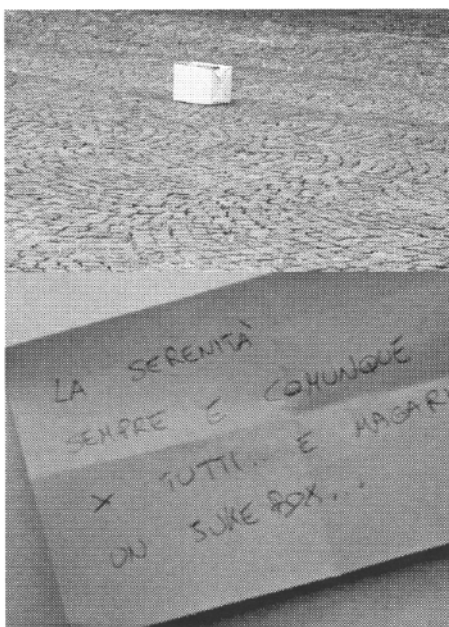 LA SERENITÀ
SEMPRE E COMUNQUE
X TUTTI... E MAGARI
UN JUKE BOX...